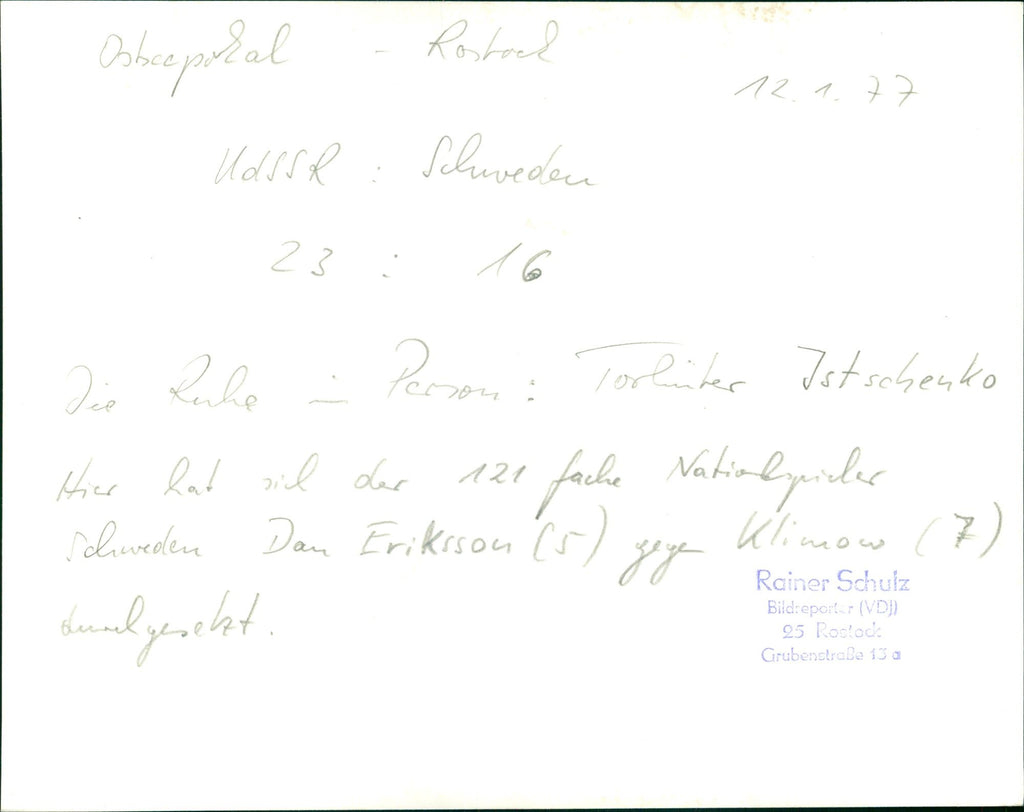 Ostseepokal - Rostock
12.1.77
UdSSR : Schweden
23 : 16
Die Ruhe in Person: Torhüter Istschenko
Hier hat sich der 121 fache Nationalspieler
Schweden Dan Eriksson (5) gegen Klimow (7)
durchgesetzt.
Rainer Schulz
Bildreporter (VDJ)
25 Rostock
Grubenstraße 13a